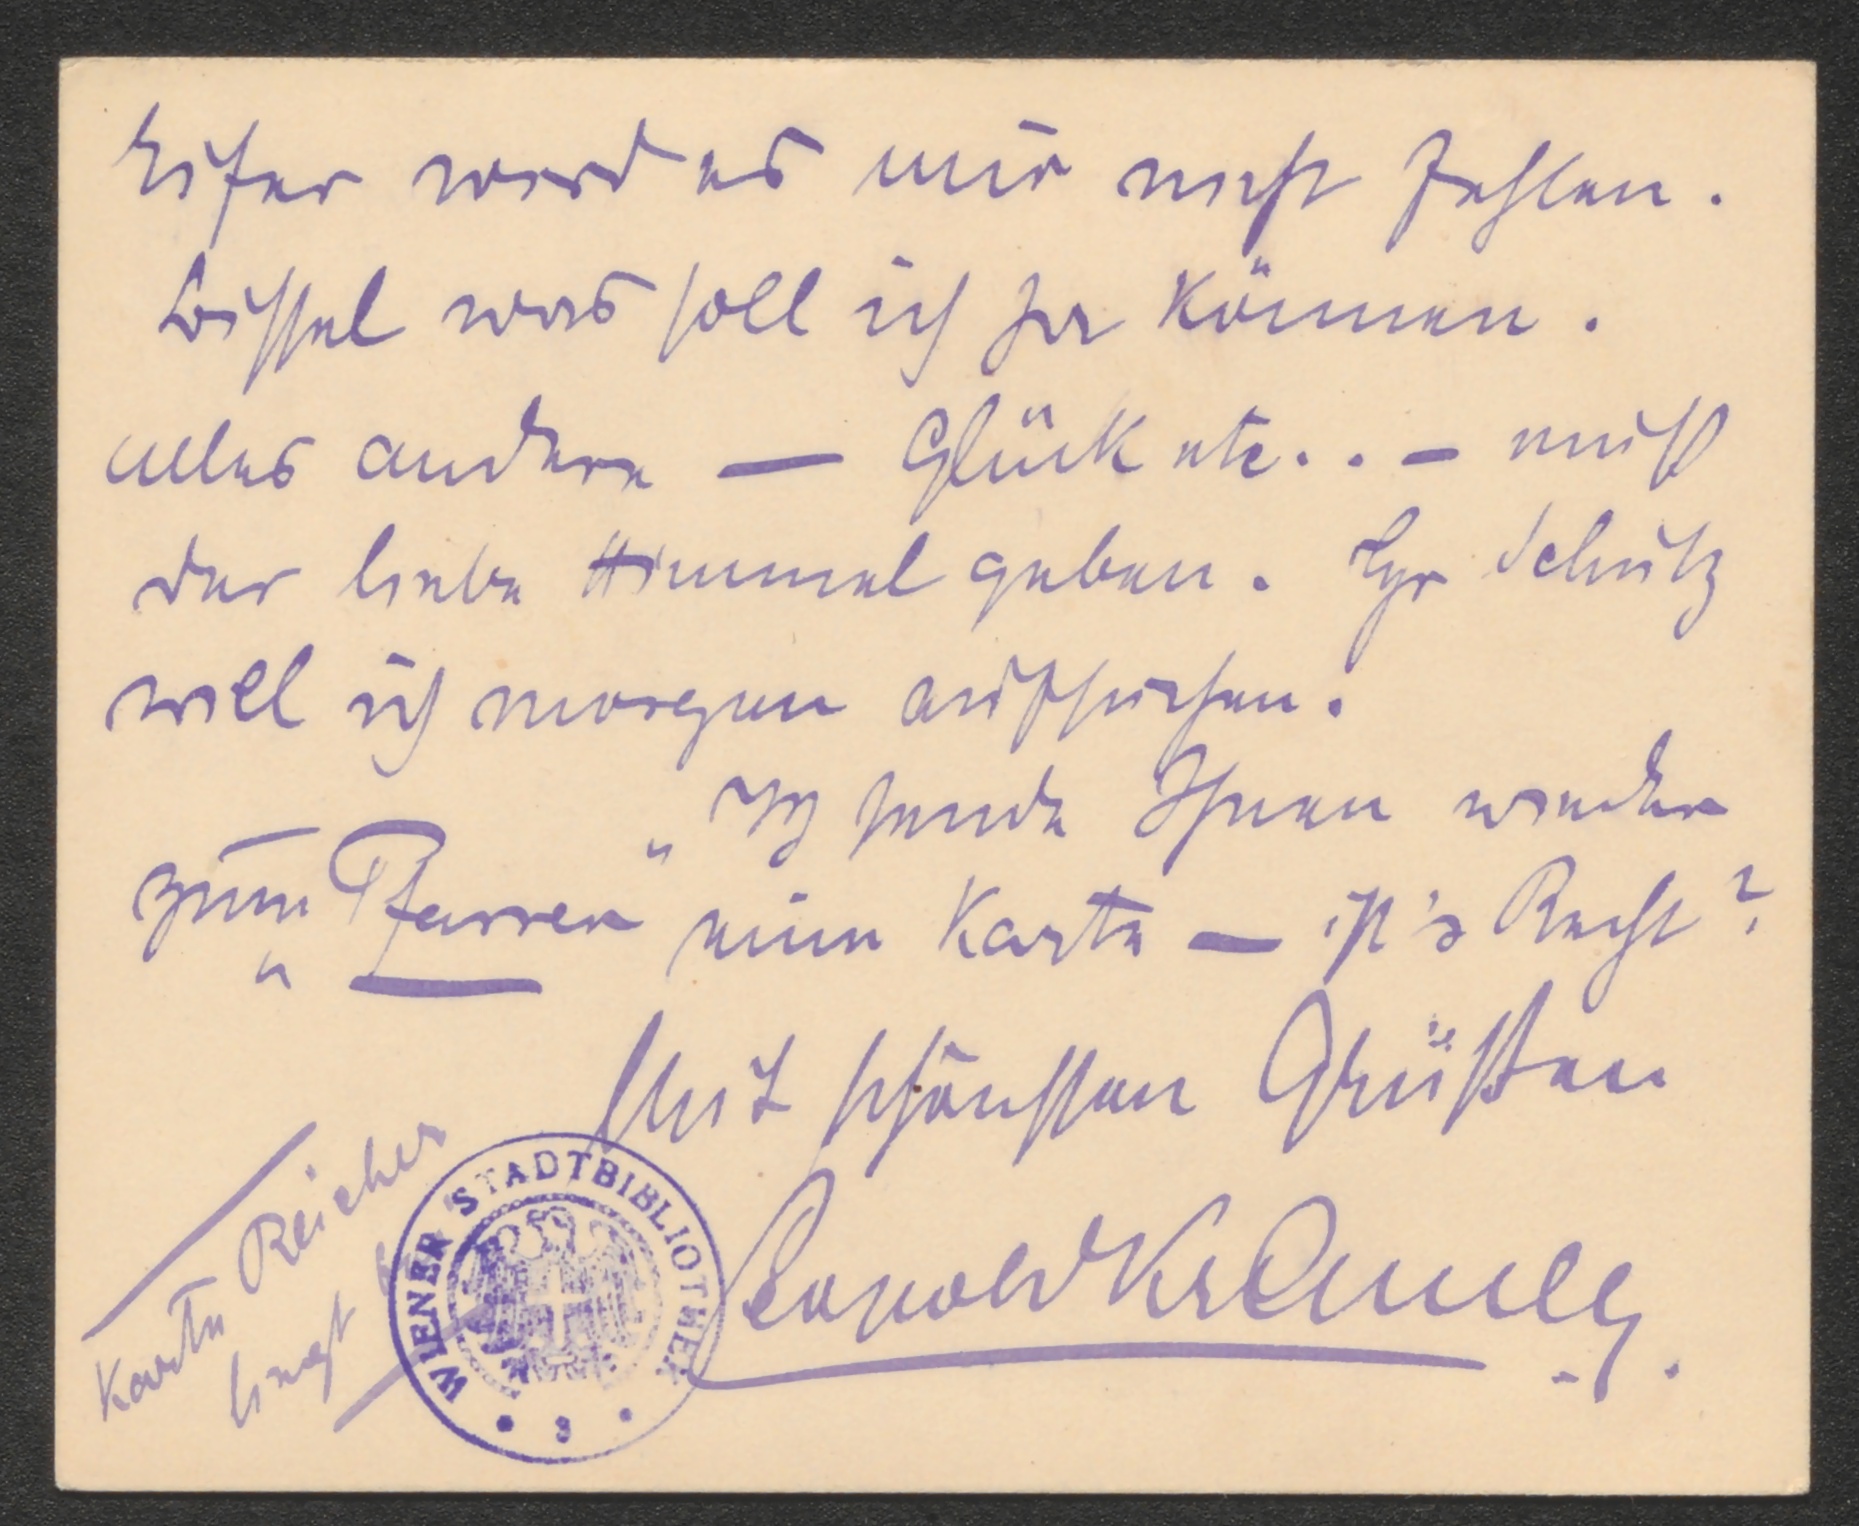 Eifer wird es mir nicht fehlen.
Bissel was soll ich ja können.
Alles andere — Glück etc... — muß
der liebe Himmel geben. Hr Schütz
will ich morgen aufsuchen.
Ich sende Ihnen wieder
zum „Pfarrer“ eine Karte — ist's Recht?
Mit schönsten Grüßen
Leopold Kramer.
Karte Reicher
liegt
WIENER STADTBIBLIOTHEK